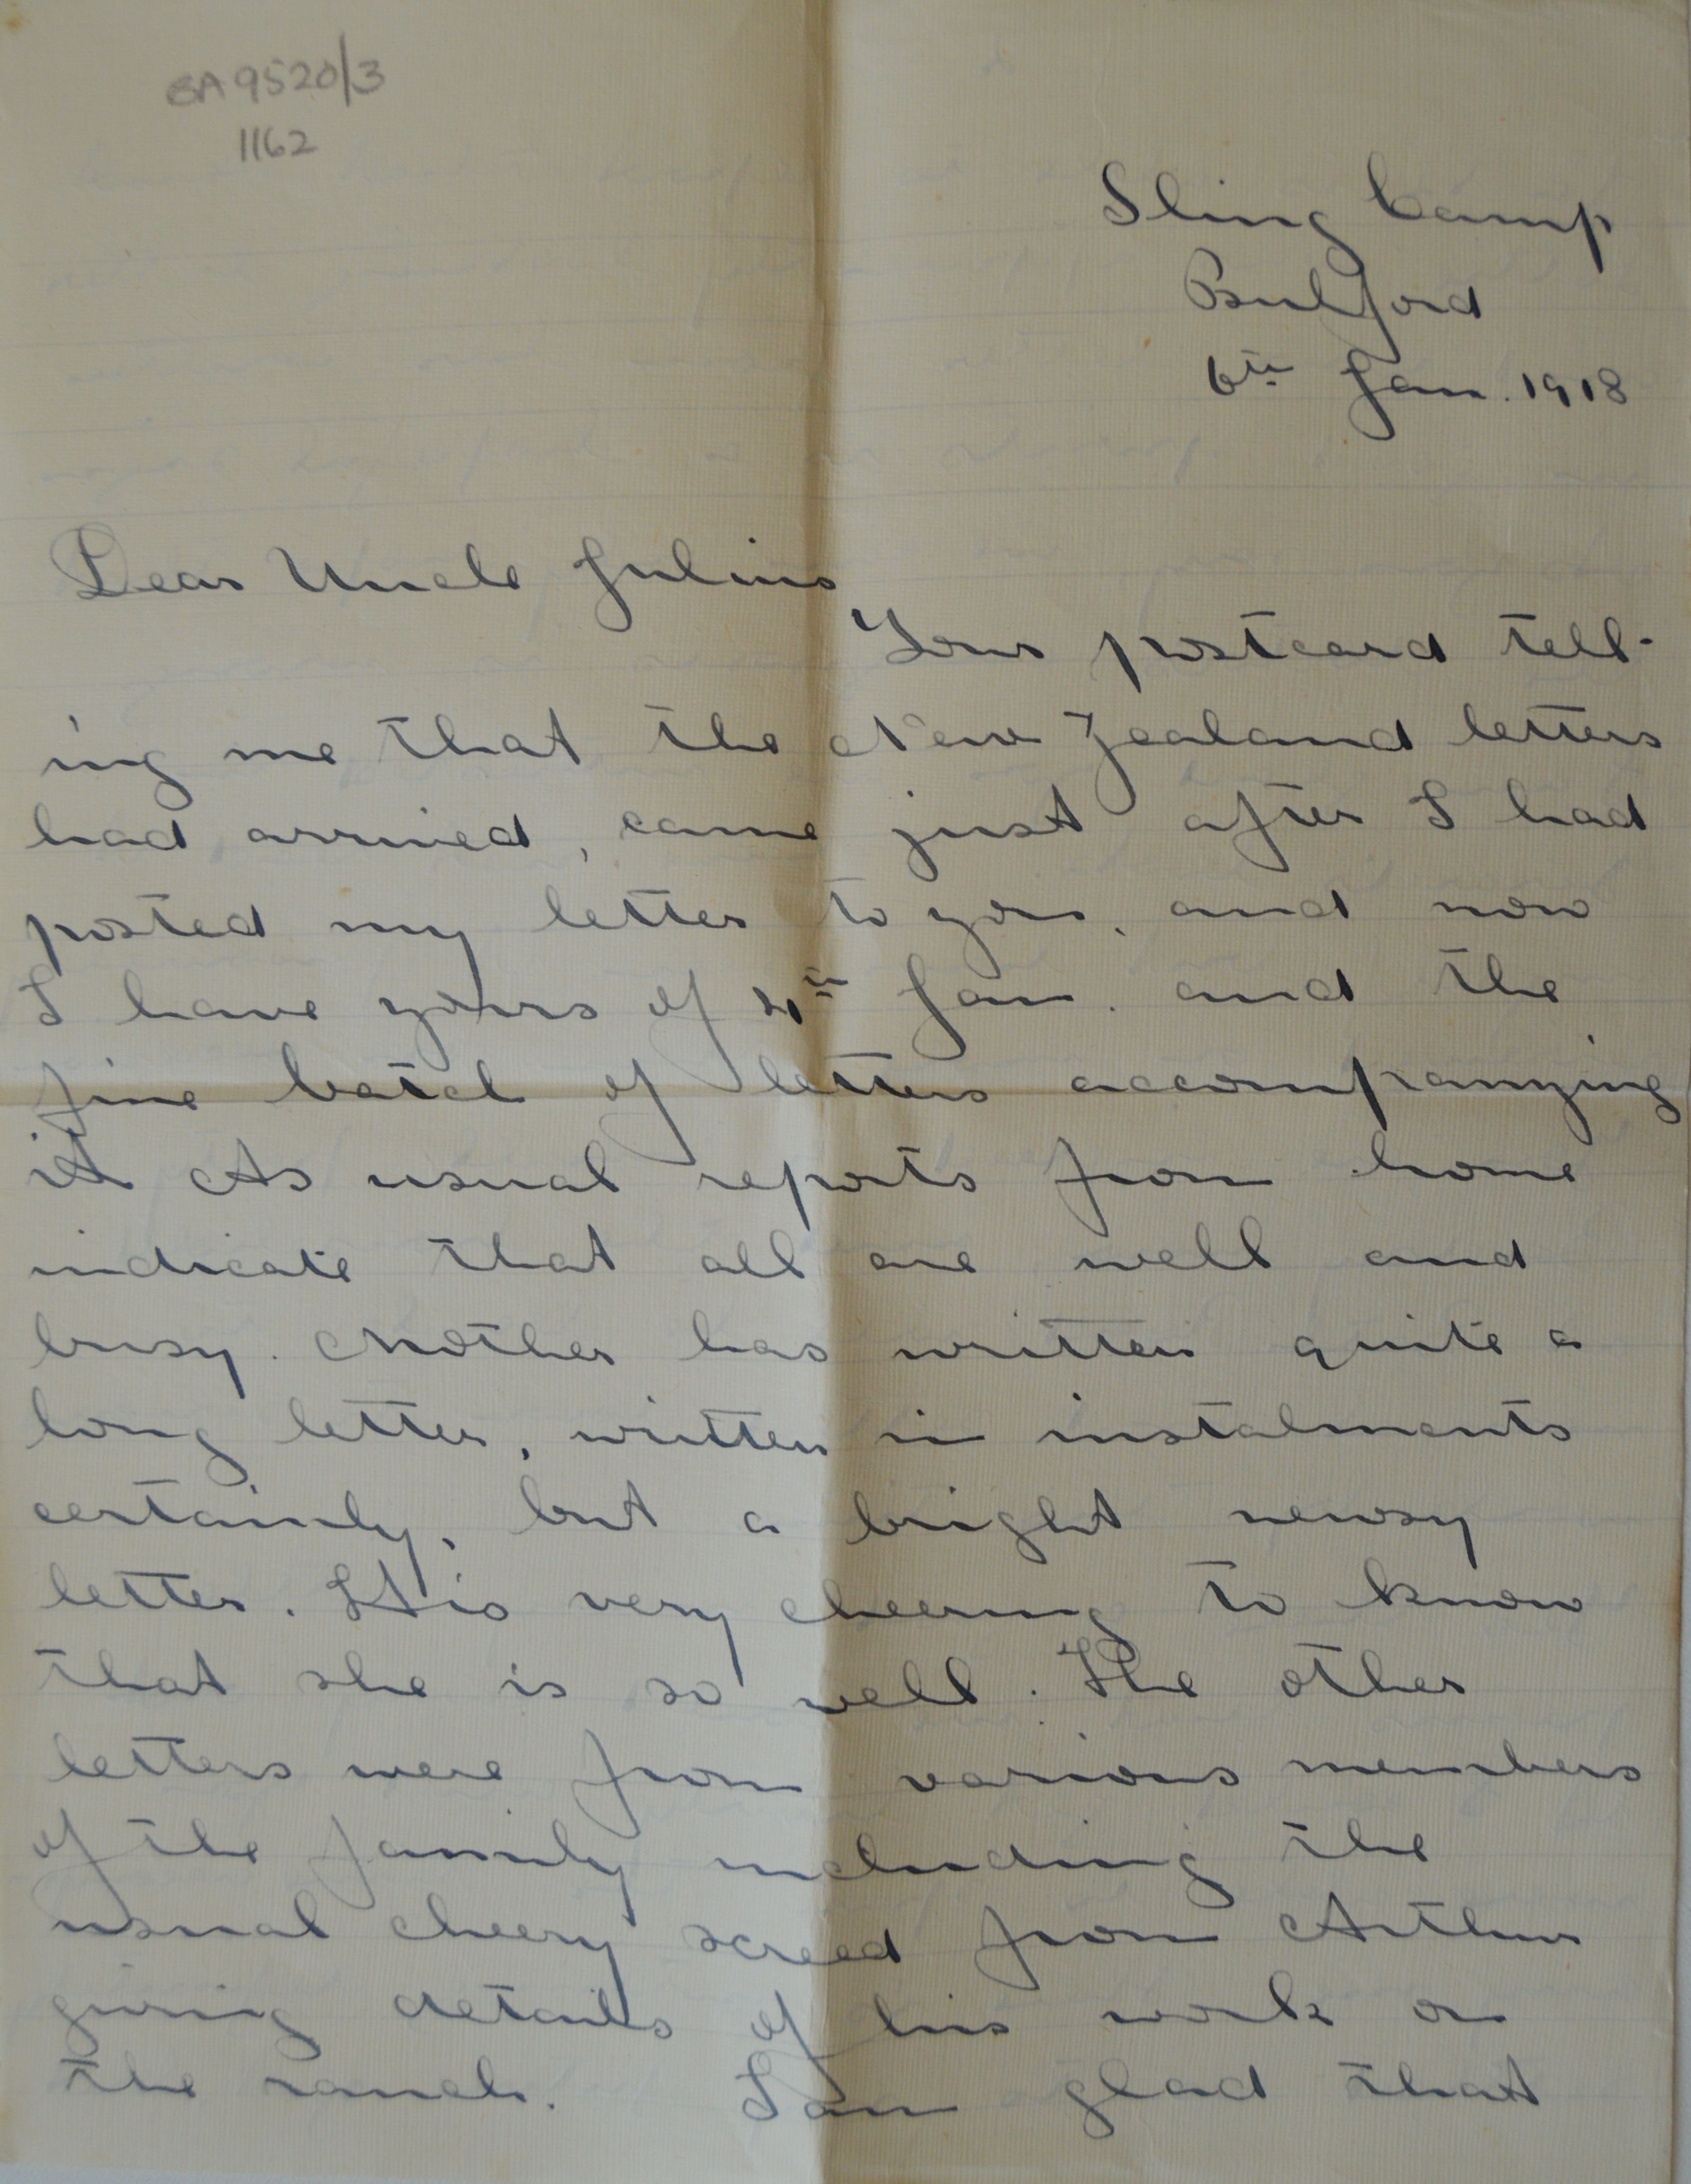 BA 9520/3
1162
Sling Camp
Bulford
6th Jan. 1918
Dear Uncle Julius
Your postcard tell-
ing me that the New Zealand letters
had arrived, came just after I had
posted my letter to you, and now
I have yours of 4th Jan. and the
fine batch of letters accompanying
it As usual reports from home
indicate that all are well and
busy. Mother has written quite a
long letter, written in instalments
certainly, but a bright newsy
letter. It is very cheering to know
that she is so well. The other
letters were from various members
of the family including the
usual cheery screed from Arthur
giving details of his work on
the ranch. I am glad that